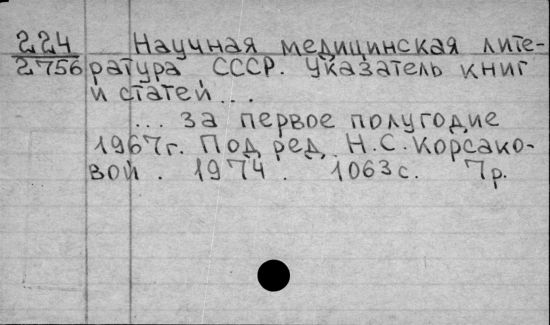 224 Научная медицинская лите-
2756 ратура СССР. Указатель книг
и статей...
... за первое полугодие
1967г. Под ред. Н.С. Корсако-
вой. 1974. 1063с. 7р.